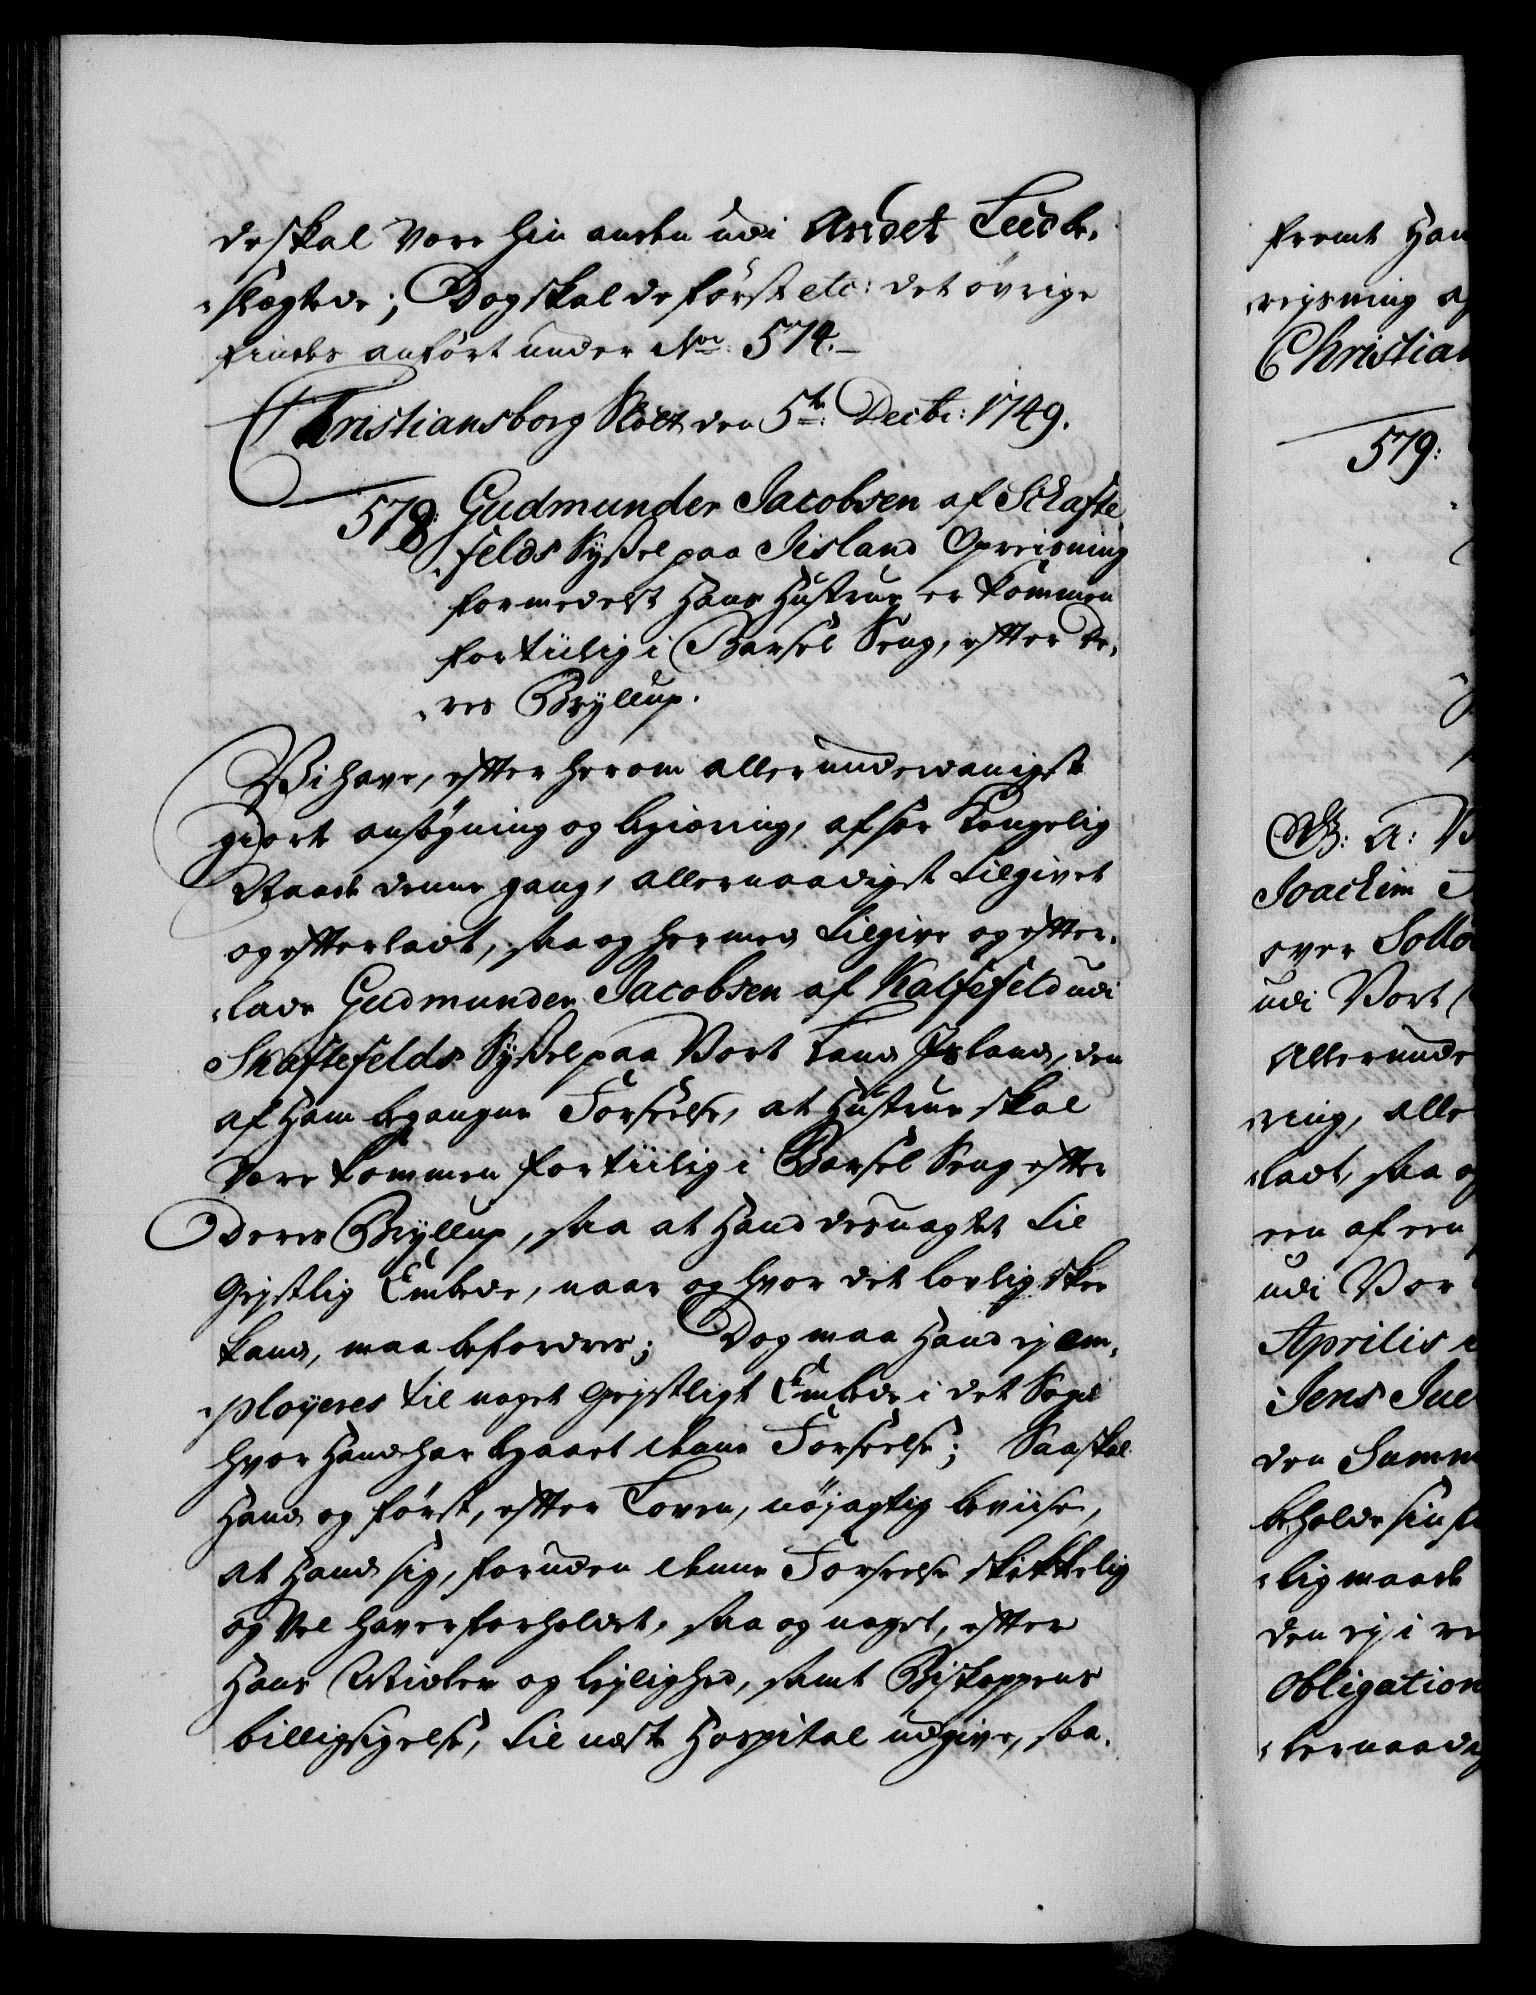 de skal være hin anden udi Andet Leed be-
-slægtede; Dog skal de först etc: det övrige
findes anfört under No: 574.
Christiansborg Slott den 5te Decbr: 1749.
578: Gudmunder Jacobsen af Schafte
-felds Syssel paa Iisland Opreisning
formedelst Hans Hustrue er kommen
fortiilig i Barsel Seng, efter de-
-res Bryllup.
Vi have, efter herom allerunderdanigst
giort ansögning og begiæring, af sær Kongelig
Naade denne gang, allernaadigst tilgivet
og efterladt, saa og hermed tilgive og efter-
-lade Gudmunder Jacobsen af Kalfefeld udi
Skaftefelds Syssel paa Vort Land Island, den
af Ham begangne Forseelse, at Hustrue skal
være kommen fortiilig i Barsel Seng efter
Deres Bryllup, saa at Hand desuagtet til
Geistlig Embede, naar og hvor det lovlig skee
kand, maa befordres; Dog maa Hand ej em-
-ployeres til noget Geistligt Embede i det Sogn
hvor Hand har begaaet denne Forseelse; Saa skal
Hand og först, efter Loven, nöjagtig beviise,
at Hand sig, foruden denne Forseelse skikkelig
og vel haver forholdet, saa og noget, efter
Hans Midler og lejlighed, samt Biskoppens
billigsigelse, til næste Hospital udgive, saa-
fremt Han
-rejsning af
Christian
579:
W: A: V
Joachim
over
udi Vort
Allerunde
-ring, alle
-ladt, saa og
een af een
udi Vor
Aprilis
Jens Juel
den Summ
beholde sin
-lig maade
den ej i
Obligation
-lernaadig